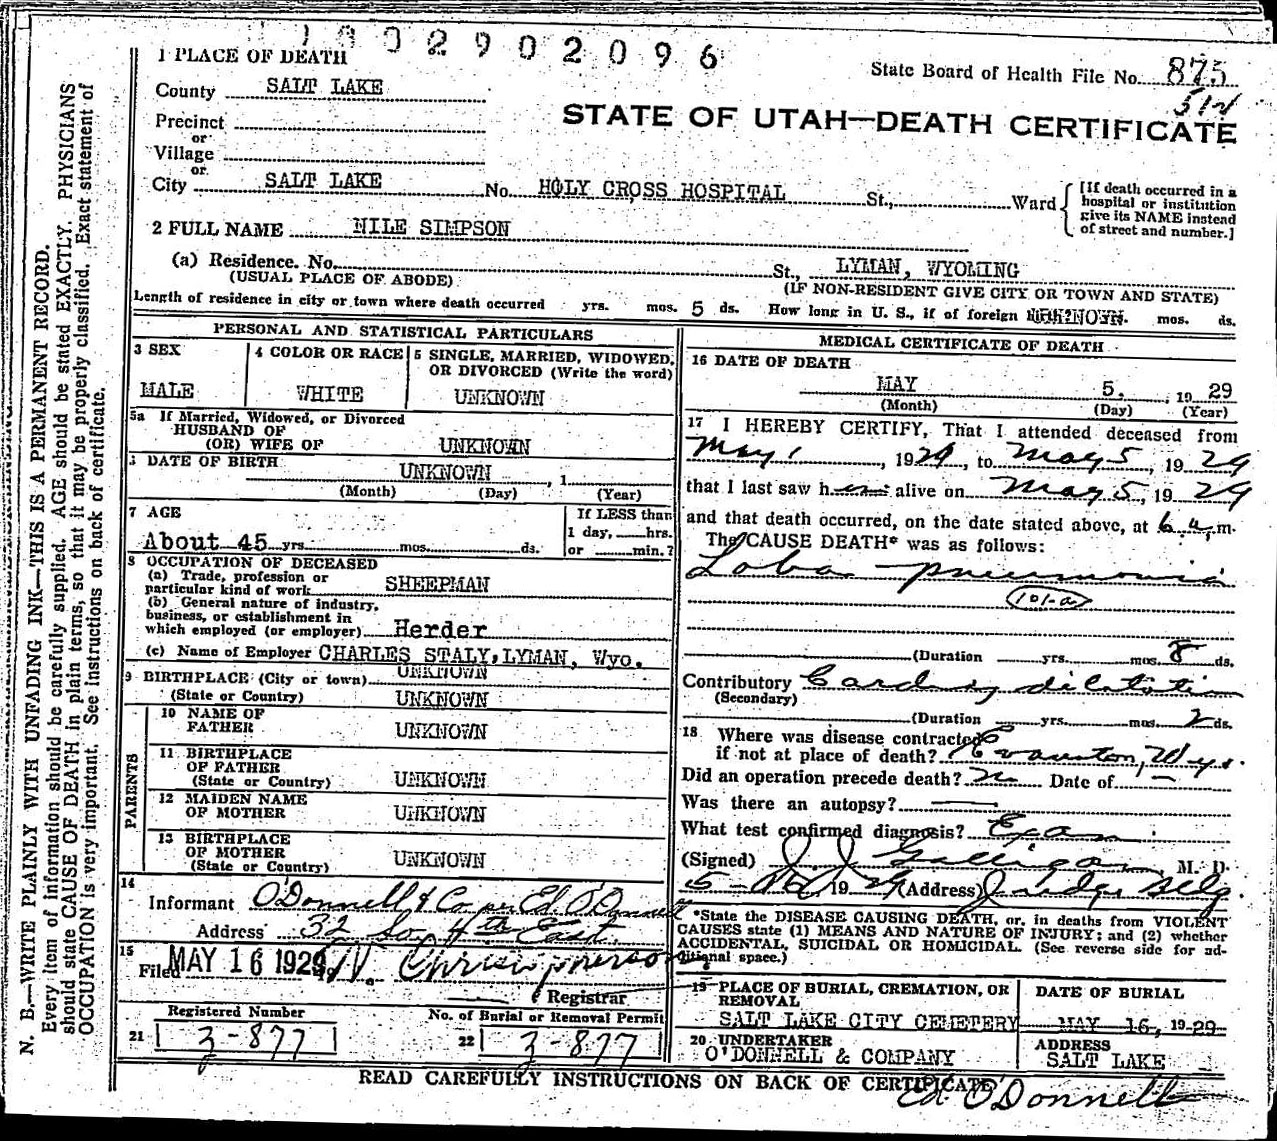 1 9 0 2 9 0 2 0 9 6
1 PLACE OF DEATH
State Board of Health File No. 875
512
County SALT LAKE
STATE OF UTAH—DEATH CERTIFICATE
Precinct
or
Village
or
City SALT LAKE No. HOLY CROSS HOSPITAL St., Ward [If death occurred in a hospital or institution give its NAME instead of street and number.]
2 FULL NAME NILE SIMPSON
(a) Residence. No. St., LYMAN, WYOMING
(USUAL PLACE OF ABODE) (IF NON-RESIDENT GIVE CITY OR TOWN AND STATE)
Length of residence in city or town where death occurred yrs. mos. 5 ds. How long in U. S., if of foreign UNKNOWN. mos. ds.
PERSONAL AND STATISTICAL PARTICULARS
3 SEX
MALE
4 COLOR OR RACE
WHITE
5 SINGLE, MARRIED, WIDOWED,
OR DIVORCED (Write the word)
UNKNOWN
5a If Married, Widowed, or Divorced
HUSBAND OF
(OR) WIFE OF UNKNOWN
DATE OF BIRTH
UNKNOWN , 1
(Month) (Day) (Year)
7 AGE
About 45 yrs. mos. ds.
If LESS than
1 day, hrs.
or min.?
8 OCCUPATION OF DECEASED
(a) Trade, profession or
particular kind of work SHEEPMAN
(b) General nature of industry,
business, or establishment in
which employed (or employer) Herder
(c) Name of Employer CHARLES STALY, LYMAN, Wyo.
9 BIRTHPLACE (City or town) UNKNOWN
(State or Country) UNKNOWN
PARENTS
10 NAME OF
FATHER UNKNOWN
11 BIRTHPLACE
OF FATHER
(State or Country) UNKNOWN
12 MAIDEN NAME
OF MOTHER UNKNOWN
13 BIRTHPLACE
OF MOTHER
(State or Country) UNKNOWN
14
Informant O'Donnell & Co per Ed. O'Donnell
Address 32 So 4th East.
15
Filed MAY 16 1929
Registrar
Registered Number
21 3-877
No. of Burial or Removal Permit
22 3-877
MEDICAL CERTIFICATE OF DEATH
16 DATE OF DEATH
MAY 5. , 19 29
(Month) (Day) (Year)
17 I HEREBY CERTIFY, That I attended deceased from
May 1 , 1929, to May 5, 19 29
that I last saw h im alive on May 5, 19 29
and that death occurred, on the date stated above, at 6 a. m.
The CAUSE DEATH* was as follows:
Loba pneumonia
101-a
(Duration yrs. mos. 8 ds.
Contributory Cardiac dilatation
(Secondary)
(Duration yrs. mos. 2 ds.
18 Where was disease contracted
if not at place of death? Evanston, Wyo.
Did an operation precede death? no Date of —
Was there an autopsy? —
What test confirmed diagnosis? Exam
(Signed) J J Galligan, M. D.
19 29 (Address) Judge Bldg.
*State the DISEASE CAUSING DEATH, or, in deaths from VIOLENT
CAUSES state (1) MEANS AND NATURE OF INJURY; and (2) whether
ACCIDENTAL, SUICIDAL OR HOMICIDAL. (See reverse side for ad-
ditional space.)
19 PLACE OF BURIAL, CREMATION, OR
REMOVAL
SALT LAKE CITY CEMETERY
DATE OF BURIAL
MAY 16, 19 29
20 UNDERTAKER
O'DONNELL & COMPANY
ADDRESS
SALT LAKE
READ CAREFULLY INSTRUCTIONS ON BACK OF CERTIFICATE
Ed. O'Donnell
N. B.—WRITE PLAINLY WITH UNFADING INK—THIS IS A PERMANENT RECORD.
Every item of information should be carefully supplied. AGE should be stated EXACTLY. PHYSICIANS
should state CAUSE OF DEATH in plain terms, so that it may be properly classified. Exact statement of
OCCUPATION is very important. See instructions on back of certificate.